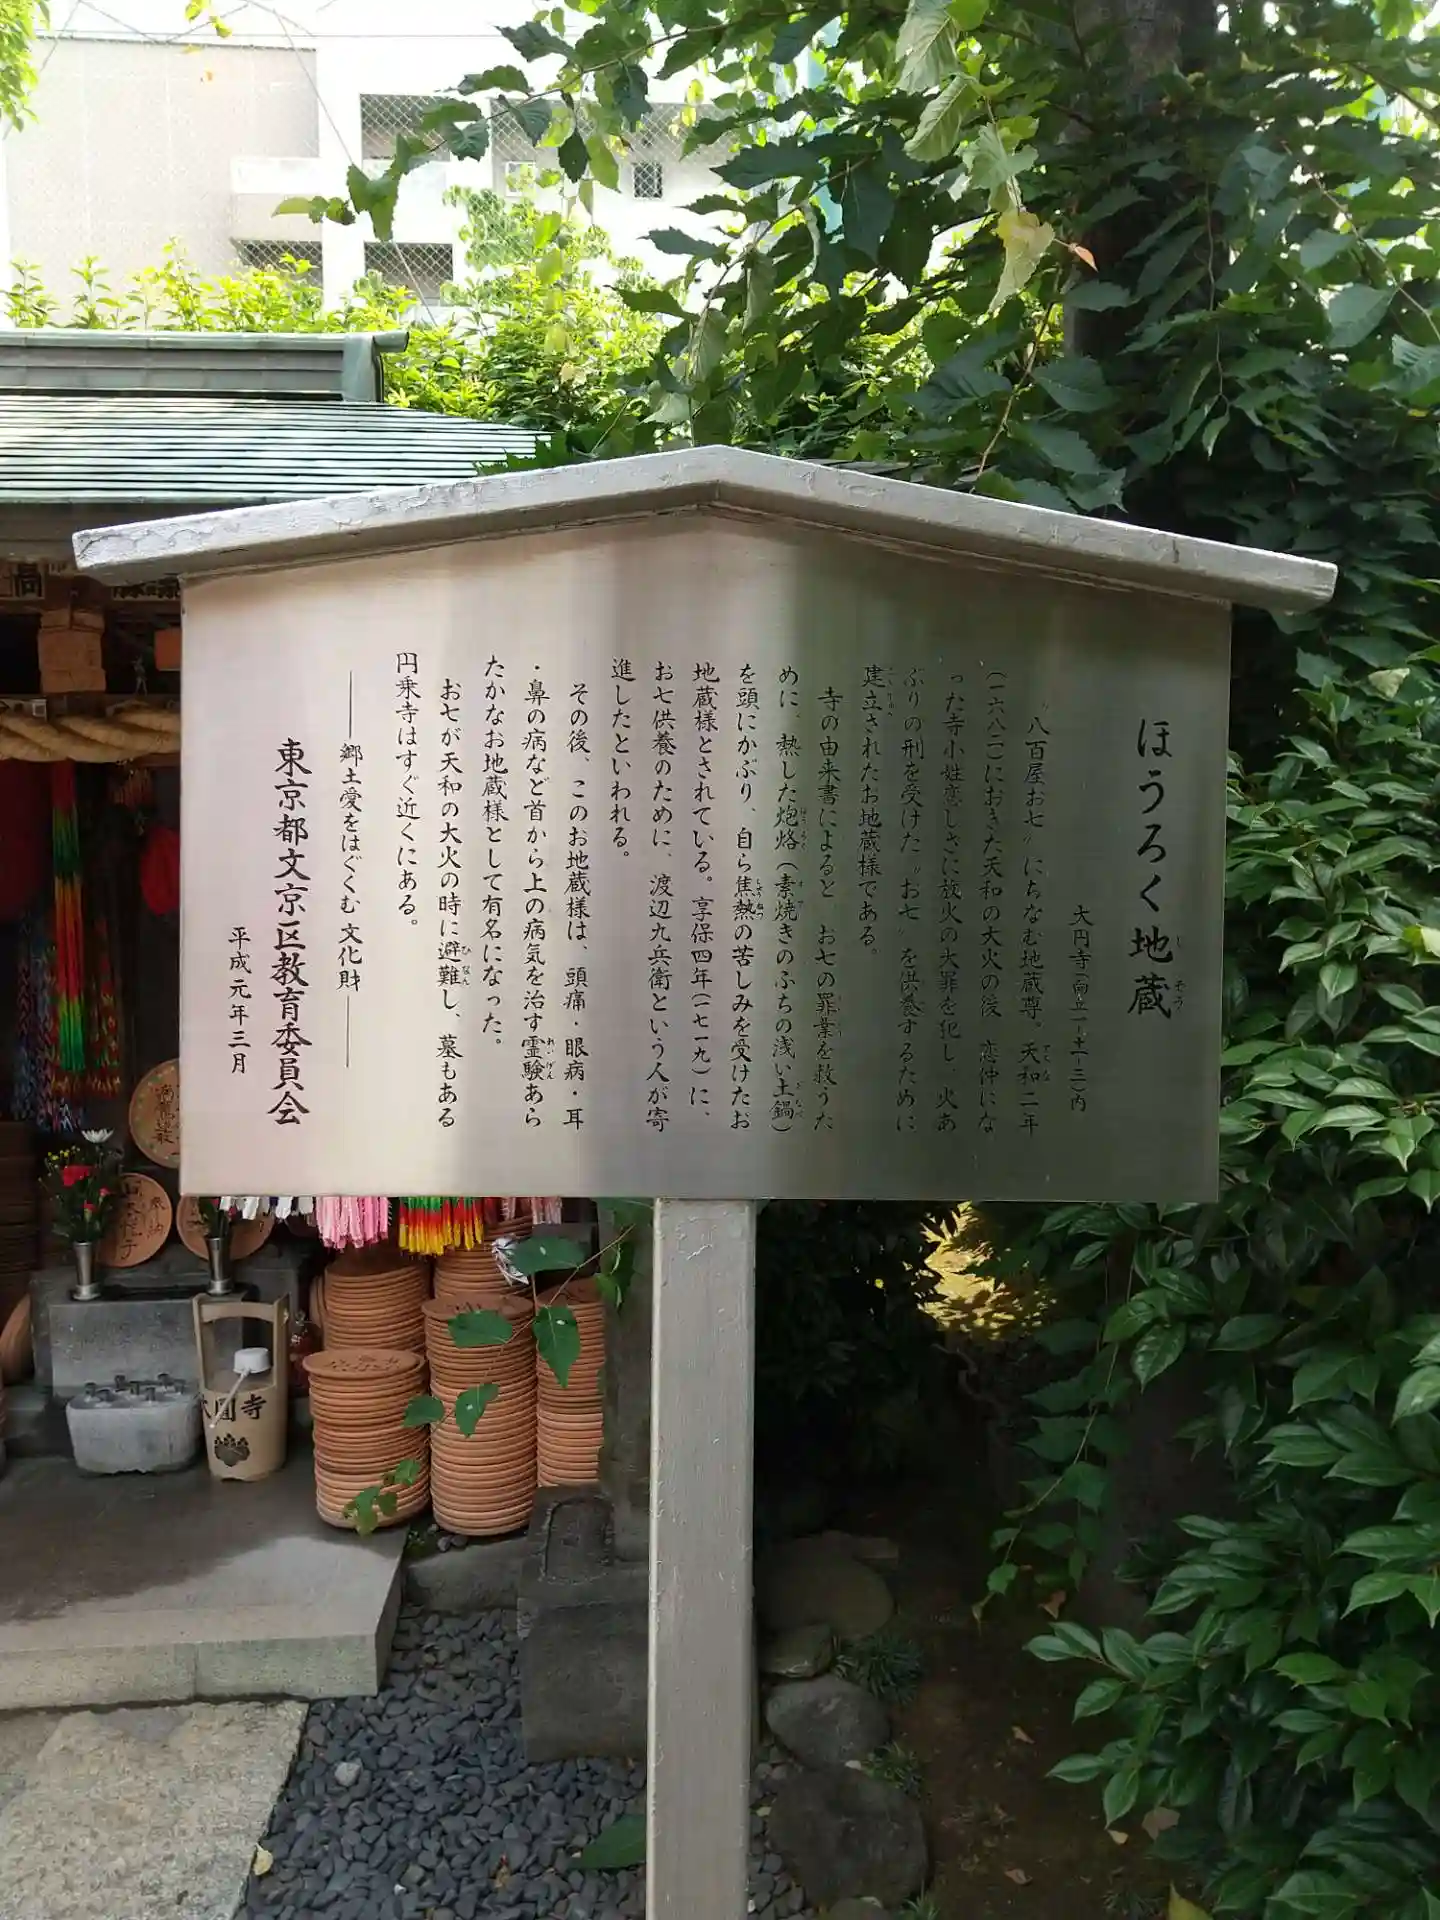 ほうろく地蔵
大円寺(向丘一-十一-三)内
〝八百屋お七〟にちなむ地蔵尊。天和二年
(一六八二)におきた天和の大火の後、恋仲にな
った寺小姓恋しさに放火の大罪を犯し、火あ
ぶりの刑を受けた〝お七〟を供養するために
建立されたお地蔵様である。
寺の由来書によると、お七の罪業を救うた
めに、熱した炮烙(素焼きのふちの浅い土鍋)
を頭にかぶり、自ら焦熱の苦しみを受けたお
地蔵様とされている。享保四年(一七一九)に、
お七供養のために、渡辺九兵衛という人が寄
進したといわれる。
その後、このお地蔵様は、頭痛・眼病・耳
・鼻の病など首から上の病気を治す霊験あら
たかなお地蔵様として有名になった。
お七が天和の大火の時に避難し、墓もある
円乗寺はすぐ近くにある。
――郷土愛をはぐくむ文化財――
東京都文京区教育委員会
平成元年三月
奉納
圓寺